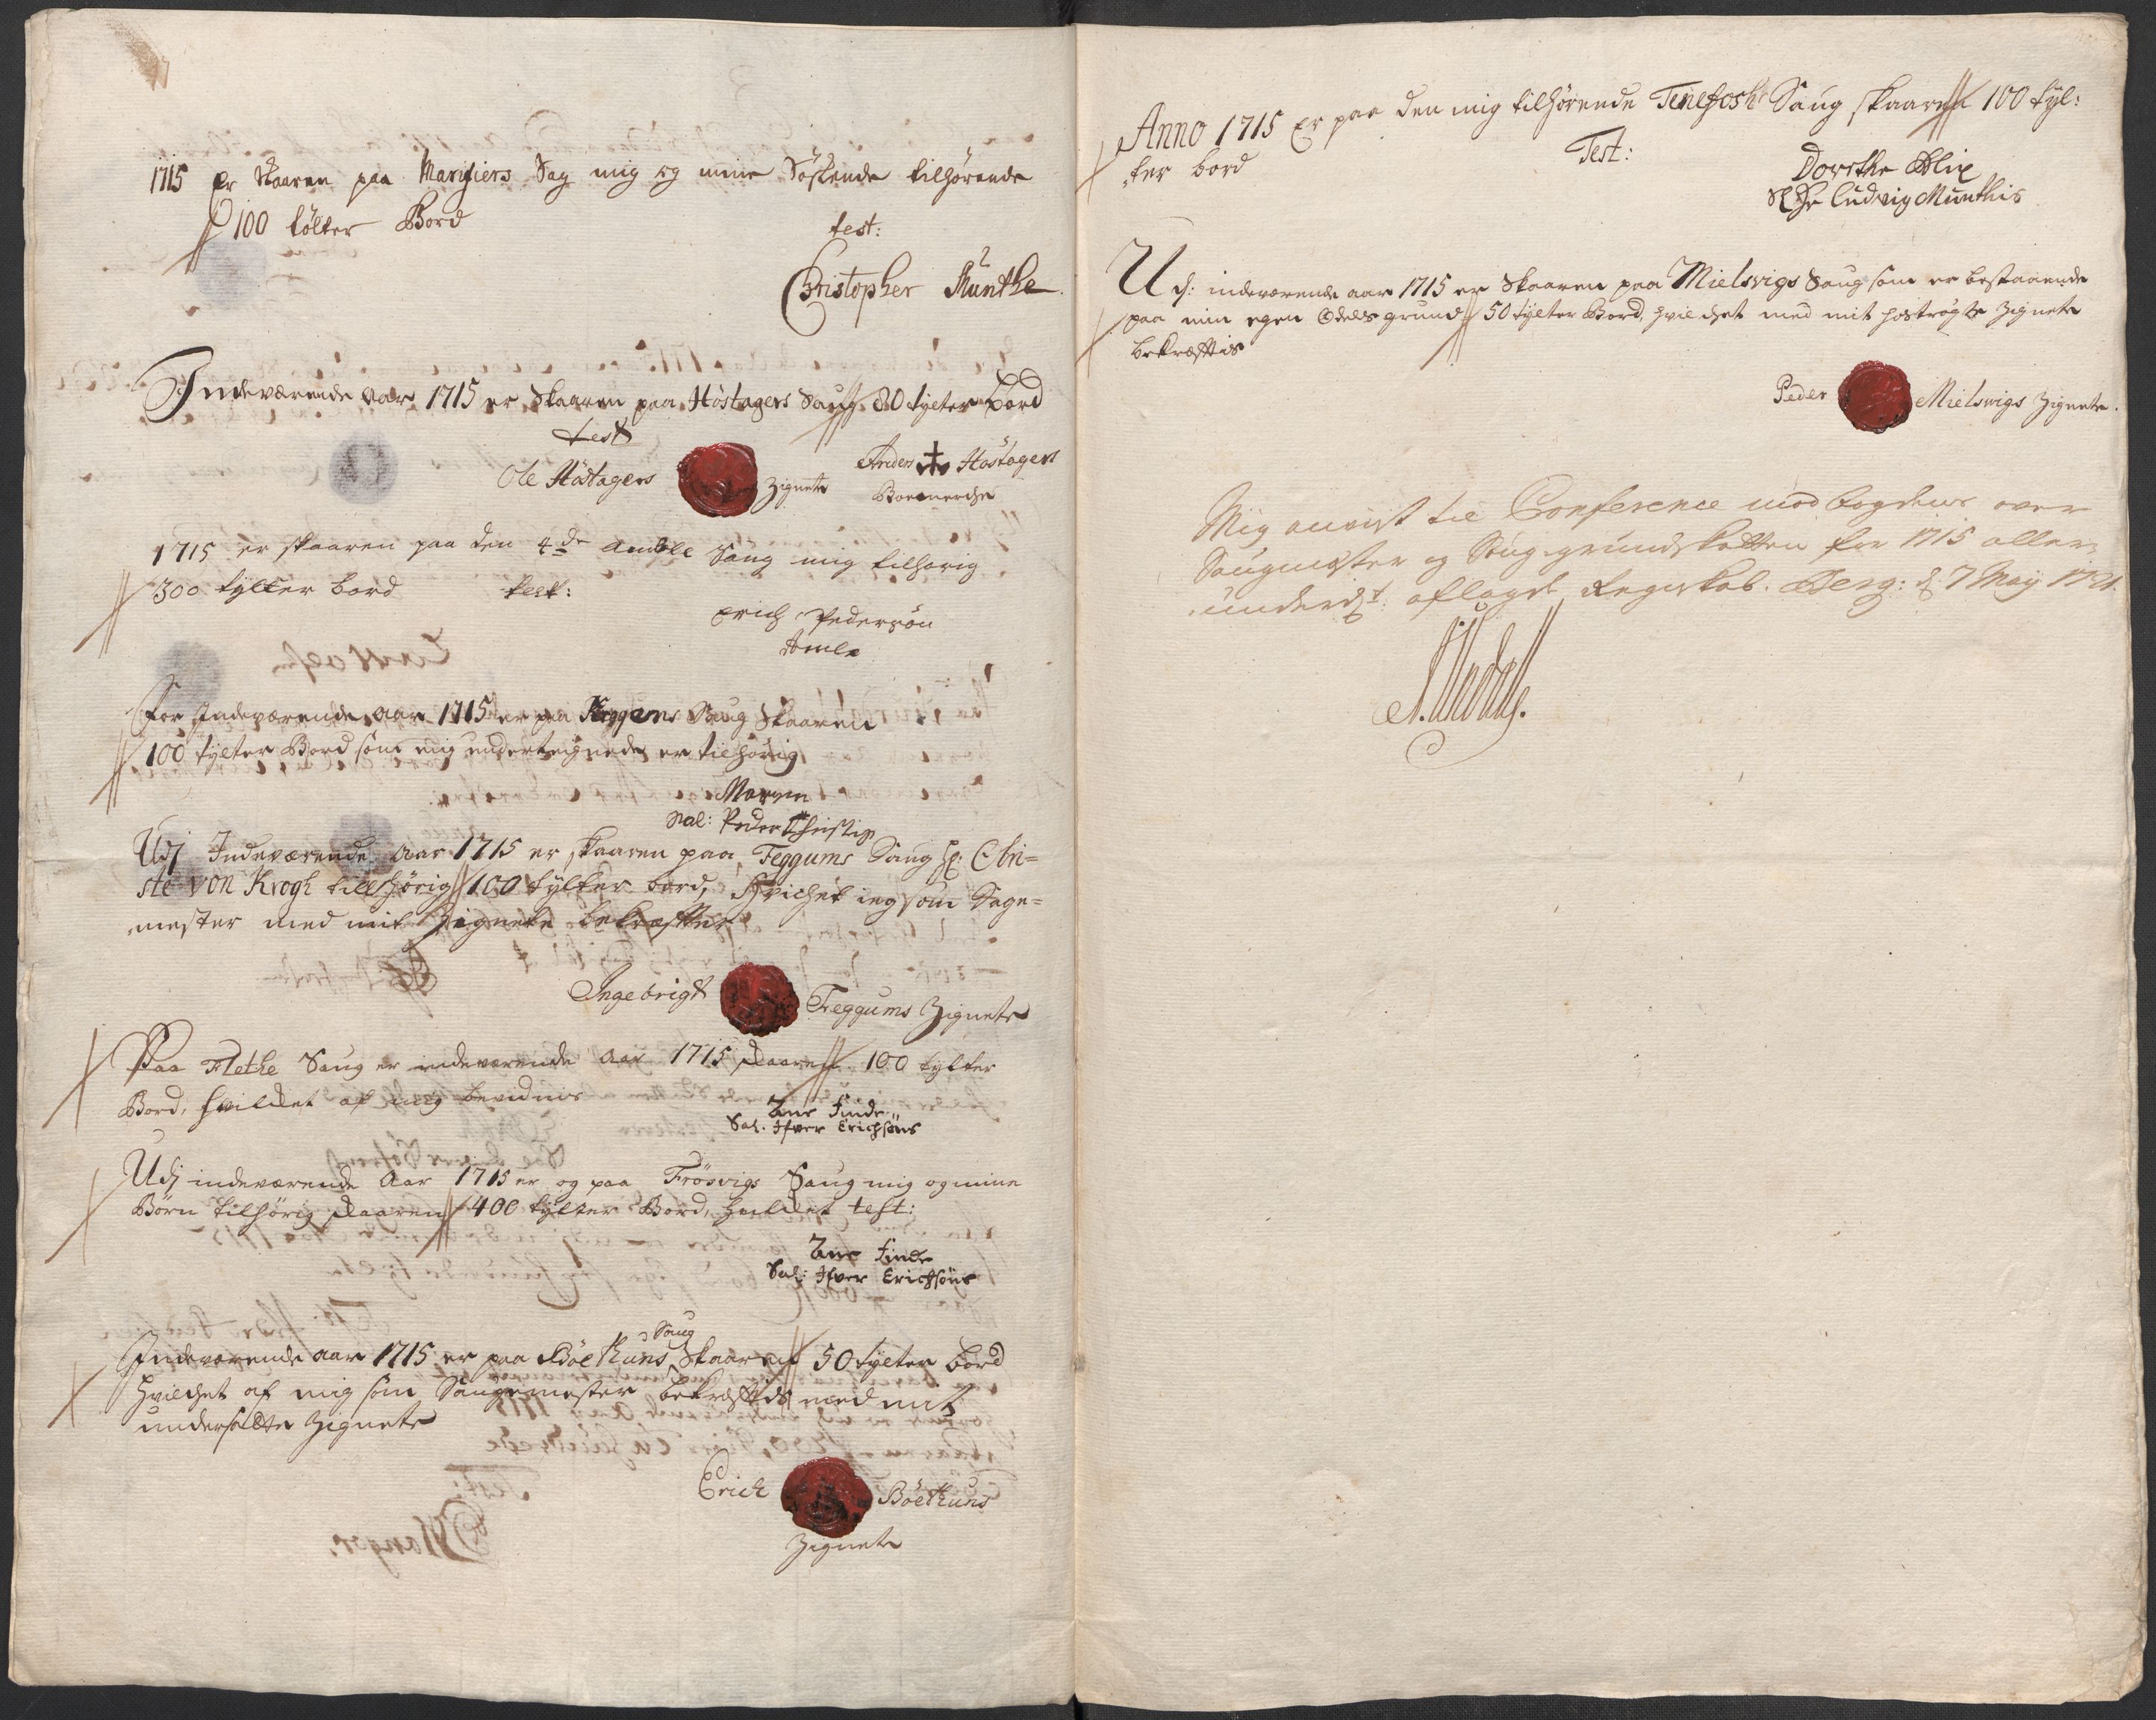 1715 er Skaaren paa Marifiers Sag mig og mine Söskende tilhörende
100 tölter Bord
test:
Christopher Munthe
Indeværende aar 1715 er Skaaren paa Höstagers Saug 80 tylter bord
test
Ole Höstagers Zignete Anders Höstagers
Boemerche
1715 er skaaren paa den 4de Amble Saug mig tilhørig
300 tylter bord test:
Erich Pedersön
Amle
For Indeværende aar 1715 er paa Kroggens Saug Skaaren
100 tylter Bord som mig underteignede er tilhörig
Maren
Sal: Peder Christis
Udj Indeværende Aar 1715 er skaaren paa Feggums Saug H: Obri=
ste von Krogh tillhörig 100 tylter bord, Hvichet ieg som Sage=
mester med mit Zignete bekræfter
Ingebrigt Feggums Zignete
Paa Flethe Saug er indeværende Aar 1715 skaaren 100 tylter
Bord, hvilcket af mig bevidnes
Zine Finde
Sal. Ifver Erichsöns
Udj indeværende Aar 1715 er og paa Frösvigs Saug mig og mine
Börn tilhörig skaaren 400 tylter Bord, hvilcket test:
Zine Finde
Sal: Ifver Erichsöns
Saug
Indeværende aar 1715 er paa Böethuns Skaaren 50 tylter bord
hvilchet af mig som Saugemester bekræfftis med mit
undersatte Zignete
Erich Böethuns
Zignete
Anno 1715 Er paa den mig tilhörende Tenefosh Saug skaaren 100 tyl:
ter bord
Test:
Dorethe Blix
Sl Hr Ludvig Munthis
Udj: indeværende aar 1715 er Skaaren paa Mielsvigs Saug som er bestaaende
paa min egen Odels grund 50 tylter Bord, hvilchet med mit hoströgte Zignete
bekræfftis
Peder Mielsvigs Zignete.
Mig anvist til Conference mod fogdens over
Saugmester og Saug-grundskatten for 1715 aller
underdst: aflagde Regnskab. Berg: d 7 May 1721.